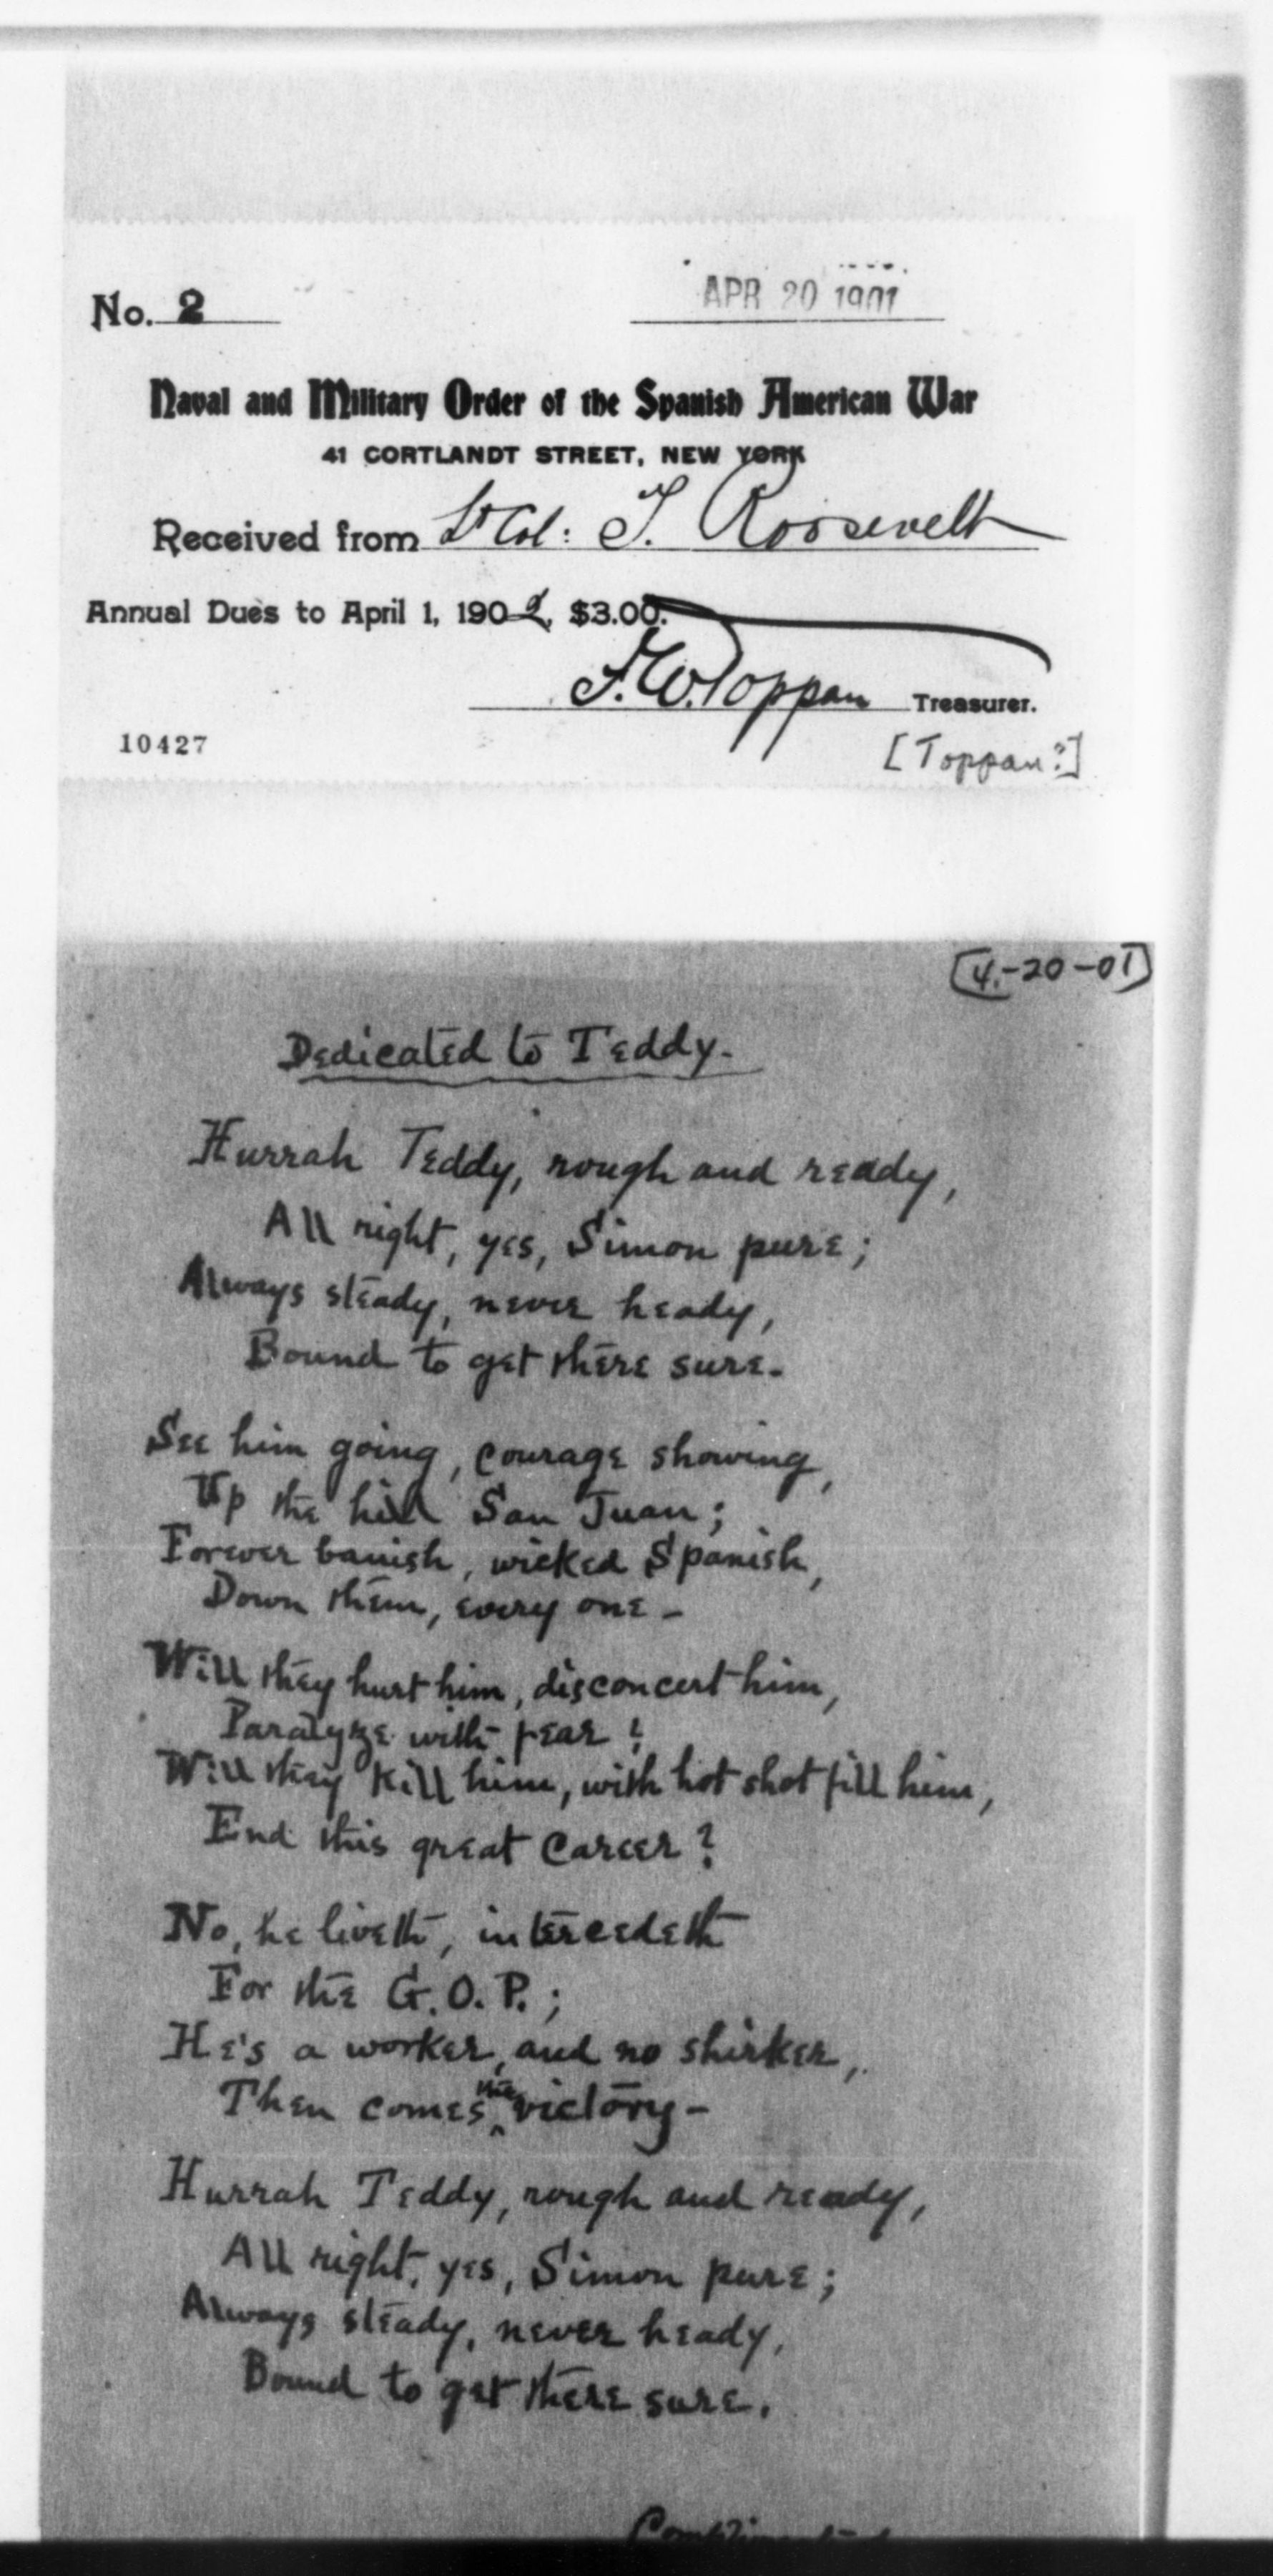 No. 2
APR 20 1901
Naval and Military Order of the Spanish American War
41 CORTLANDT STREET, NEW YORK
Received from Lt Col: T. Roosevelt
Annual Dues to April 1, 1902, $3.00.
F. W. Toppan Treasurer.
10427
[Toppan?]
[4-20-01]
Dedicated to Teddy.
Hurrah Teddy, rough and ready,
All right, yes, Simon pure;
Always steady, never heady,
Bound to get there sure.
See him going, courage showing,
Up the hill San Juan;
Forever banish, wicked Spanish,
Down them, every one -
Will they hurt him, disconcert him,
Paralyze with fear?
Will they kill him, with hot shot fill him,
End this great career?
No, he liveth, intercedeth
For the G.O.P.;
He's a worker, and no shirker,
Then comes the victory -
Hurrah Teddy, rough and ready,
All right, yes, Simon pure;
Always steady, never heady,
Bound to get there sure.